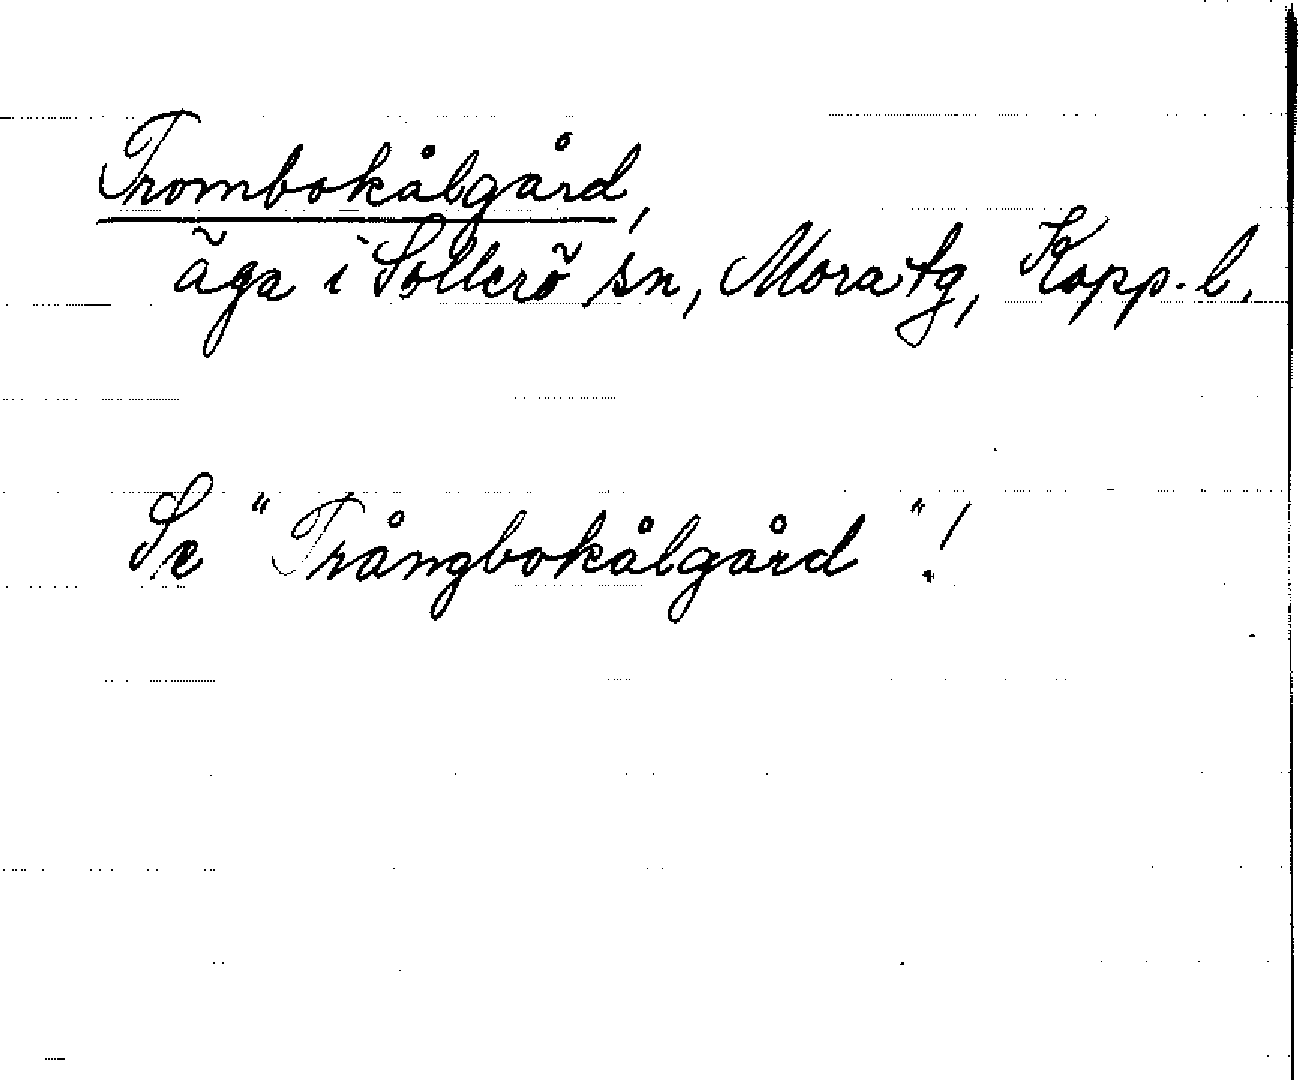 Trombokålgård,
äga i Sollerö sn, Mora tg, Kopp. l.
Se "Trångbokålgård"!